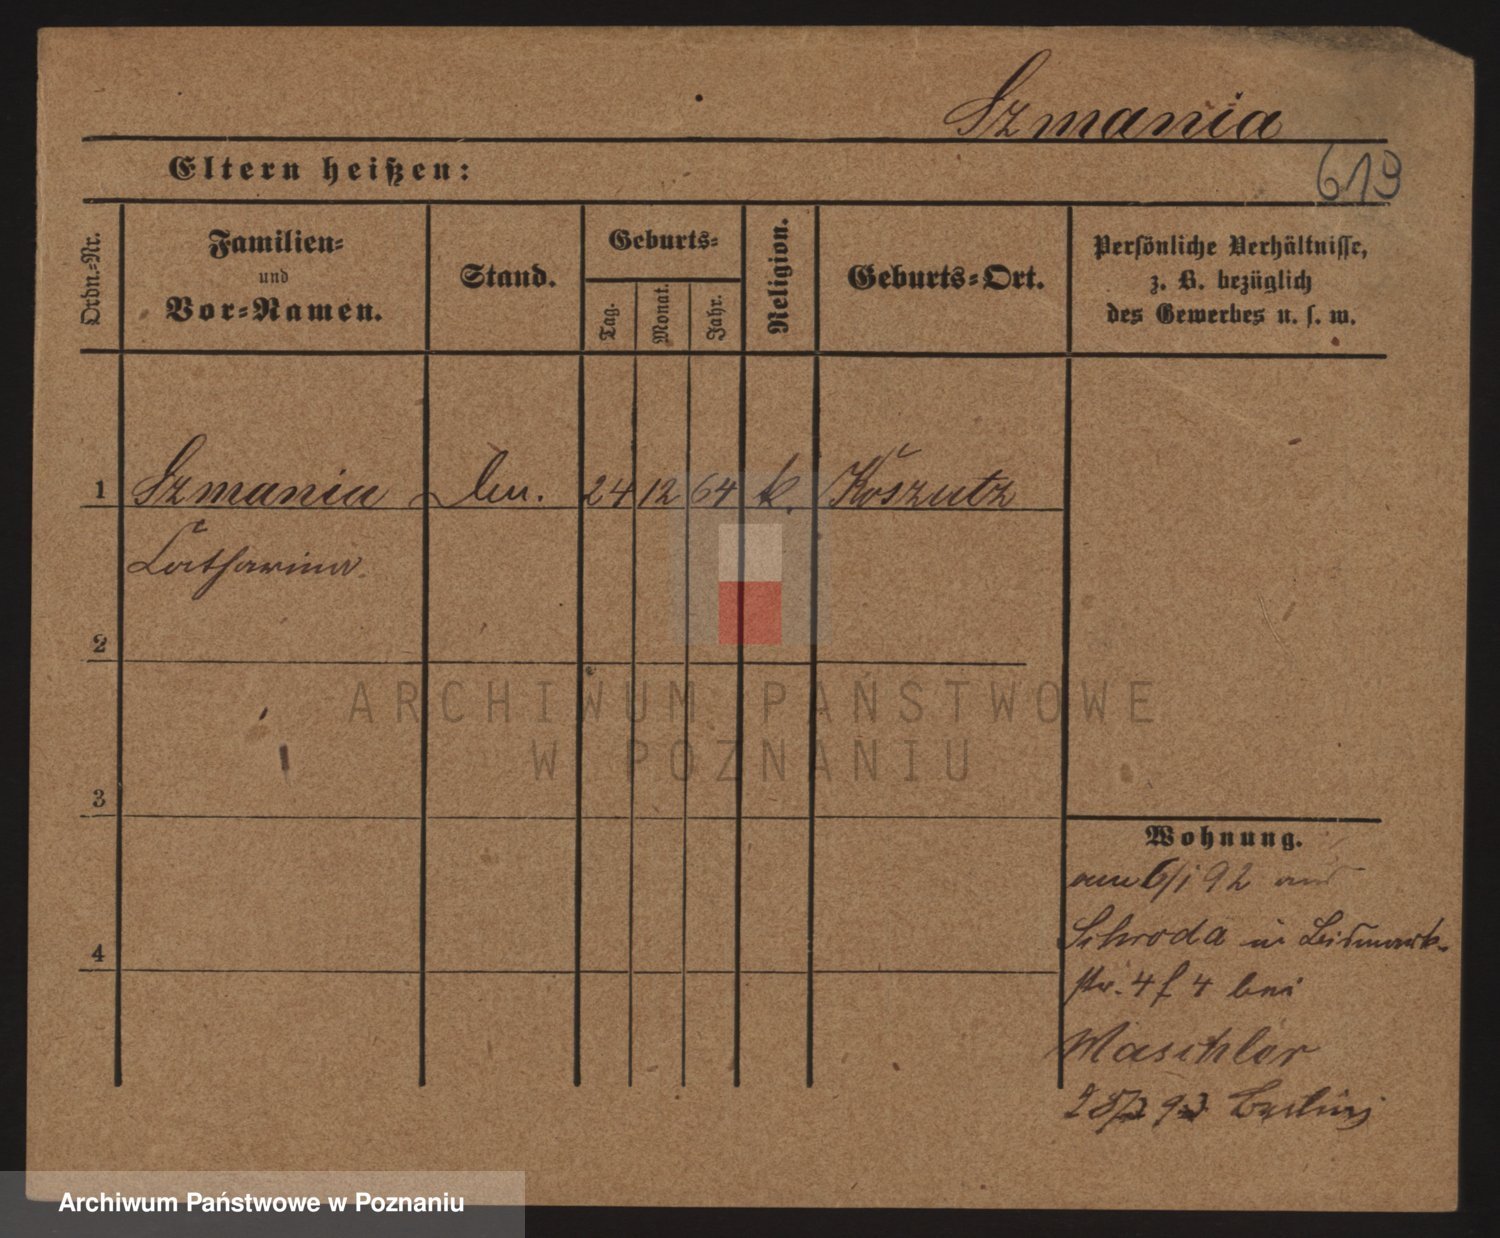 Szmania
Eltern heißen:
613
Ordn.=Nr.
Familien=
und
Vor=Namen.
Stand.
Geburts=
Tag.
Monat.
Jahr.
Religion.
Geburts=Ort.
Persönliche Verhältnisse,
z. B. bezüglich
des Gewerbes u. s. w.
1 Szmania 24 12 64 k. Koszutz
Catharina.
2
3
4
ARCHIWUM PAŃSTWOWE
W POZNANIU
Wohnung.
am 6/1 92 aus
Schroda in Bismark-
str. 4 f 4 bei
Maschler
93 Berlin
Archiwum Państwowe w Poznaniu